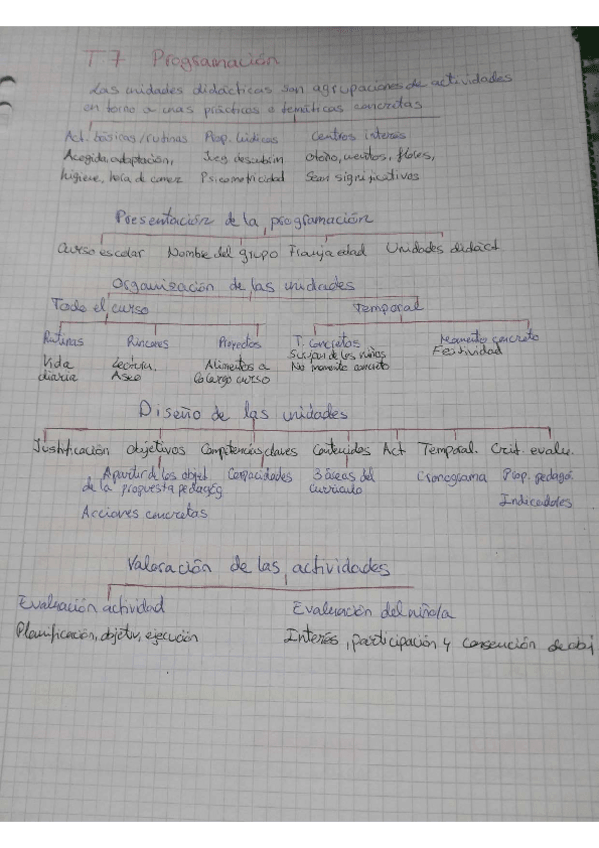 T 7 Programación
Las unidades didácticas son agrupaciones de actividades
en torno a unas prácticas o temáticas concretas
Act. básicas/rutinas Prop. lúdicas Centros interés
Acogida, adaptación, Jueg descubrim Otoño, cuentos, flores,
higiene, hora de comer Psicomotricidad Sean significativos
Presentación de la programación
Curso escolar Nombre del grupo Franja edad Unidades didáct
Organización de las unidades
Todo el curso Temporal
Rutinas Rincones Proyectos T. Concretos Momento concreto
Vida Lectura, Alimentos a Surjan de los niños Festividad
diaria Aseo lo largo curso No momento concreto
Diseño de las unidades
Justificación Objetivos Competencias claves Contenidos Act Temporal. Crit. evalu.
A partir de los objet. Capacidades 3 áreas del Cronograma Prop. pedagó.
de la propuesta pedagóg currículo Indicadores
Acciones concretas
Valoración de las actividades
Evaluación actividad Evaluación del niño/a
Planificación, objetiv, ejecución Interés, participación y consecución de obj